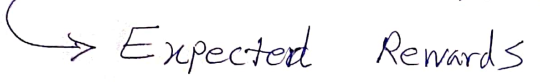 Expected Rewards